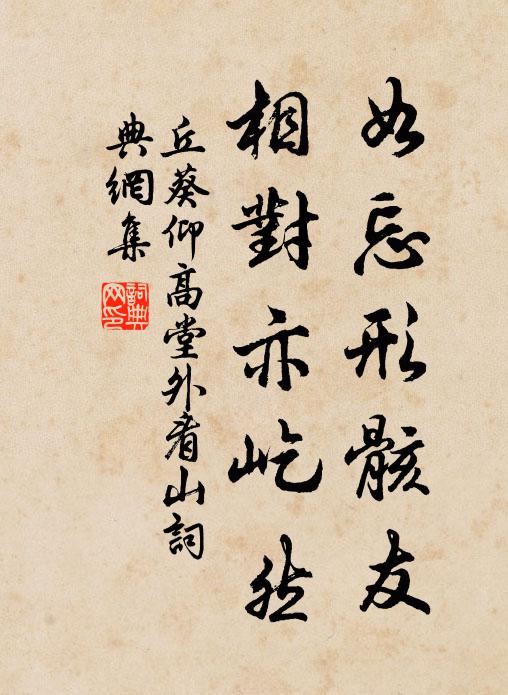 如忘形骸友
相對亦屹然
丘葵仰高堂外看山詞
典網集
詞典網印